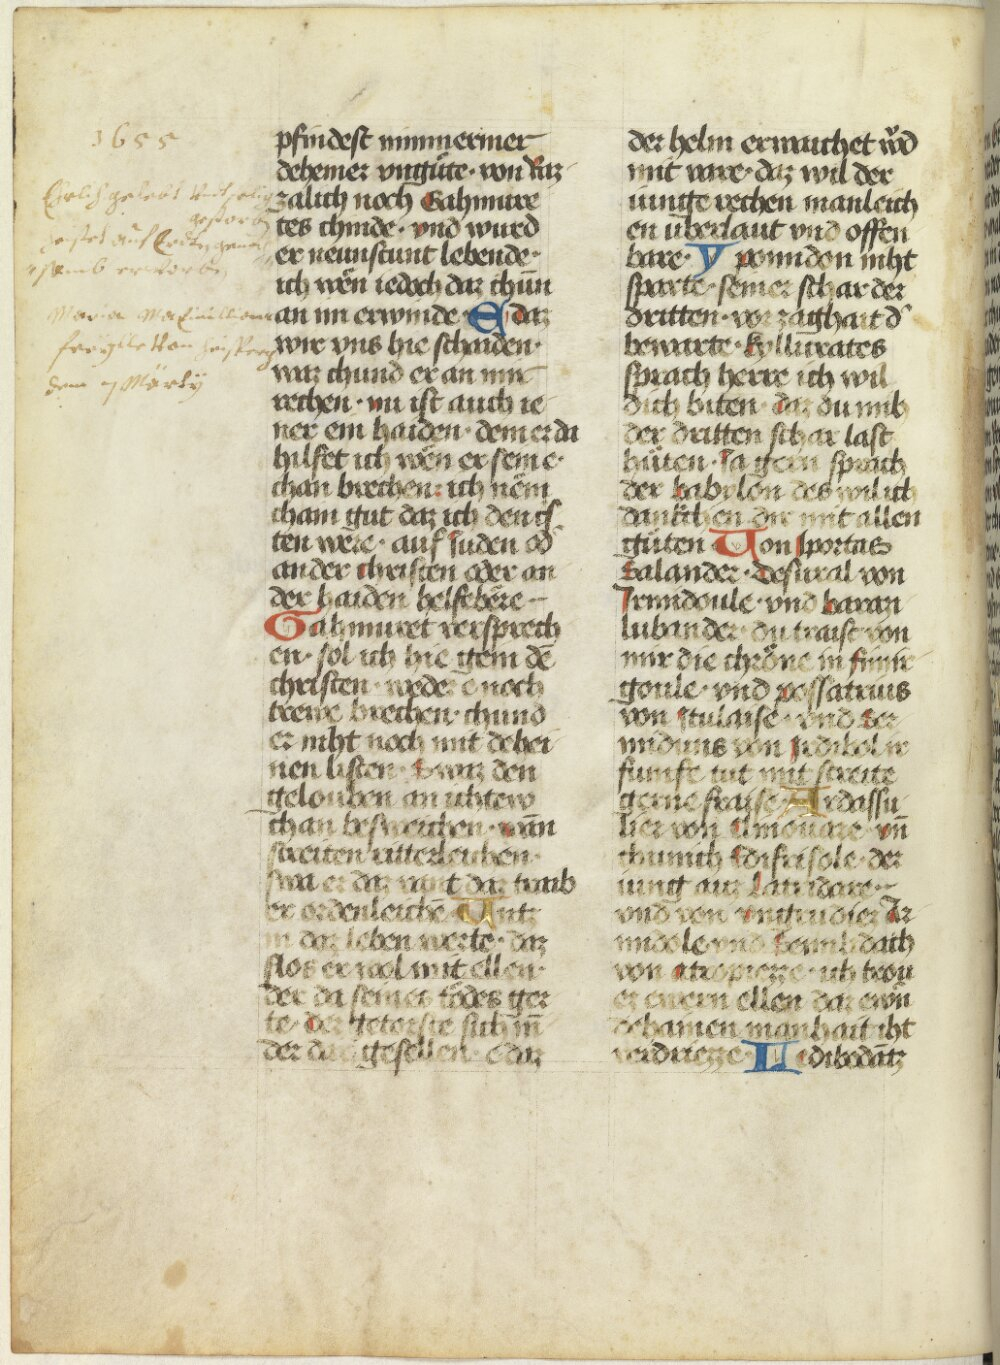 1655
Ehrlich gelebt
Maria
pfindest nimmermer
deheiner vngüte · von Raz
zalich noch Gahmure
tes chinde · vnd wurd
er neunstunt lebende ·
ich wën iedoch daz chün
an im erwinde · E daz
wir vns hie schaiden ·
waz chund er an mir
rechen · nu ist auch ie
ner ein haiden · dem er da
hilfet ich wën er sein e ·
chan brechen · ich nëm
chain gut daz ich den cs
ten wëre · auf Juden od
an der christen oder an
der haiden helfebëre
Gahmuret versprech
en · sol ich hie gein dē
christen · weder ē noch
trewe brechen · chund
er niht noch mit dehei
nen listen · Swaz den
gelouben an ichtew
chan besweichen · wān
streiten ritterleichen ·
swa er daz vant daz traib
er ordenleichē · Untz
in daz leben werte · daz
slos er wol mit ellen ·
der da seines tödes ger
te · der getorste sich in̄
der da gesellen · e daz
der helm erwachet wͦd
mit vare · daz wil der
iunge rechen manleich
en überlaut vnd offen
bare · Ypomidon niht
sparte · seiner schar der
dritten · vor zaghait d
bewarte · kyllurates
sprach herre ich wil
dich biten · daz du mich
der dritten schar last
hüten · Ja gern sprach
der babylon des wil ich
danchen dir mit allen
güten Von sportas
Galander · Desural von
Irmindoule · vnd baran
lubander · du traist von
mir die chröne in fimir
goule · vnd possatrius
von stulaise · vnd Ser
miduns von
funfte tut mit streite
gerne fraise · Ardassu
lier von Elmonare · vn̄
chunich Edifrisole · der
iung auz Larridare ·
vnd von
midole vnd
von atropiezze · ich trou
er ewern ellen daz ewn
dehainen manhait iht
verdriezze · Lidibodātz